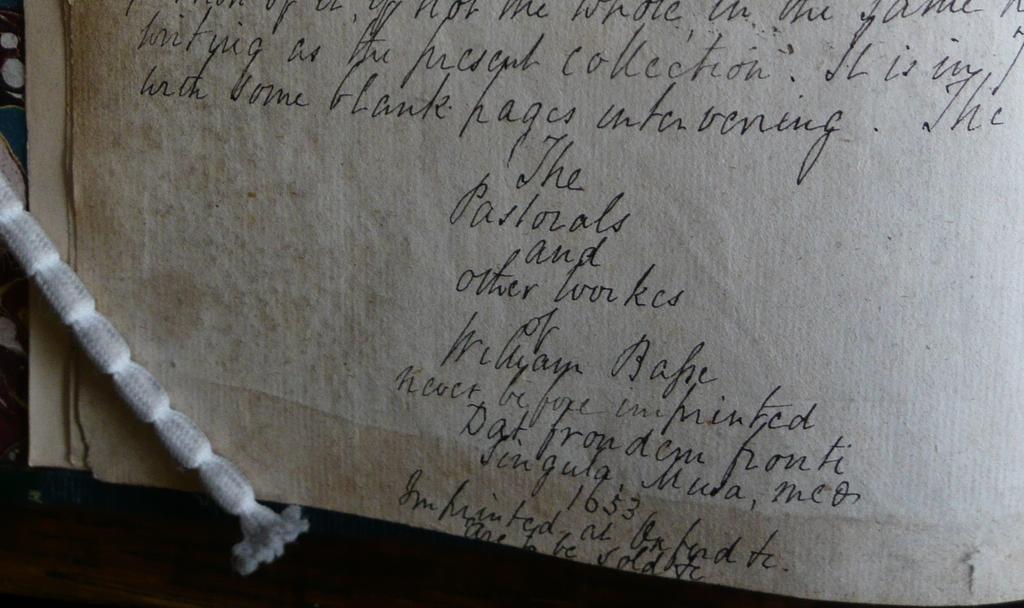 of it, if not the whole, in the same
writing as the present collection. It is in
with some blank pages intervening. The
The
Pastorals
and
other workes
of
William Baſse
never before imprinted
Dat frondem fronti
Singula, Musa, meæ
1653
Imprinted at Oxford &c.
are to be sold &c